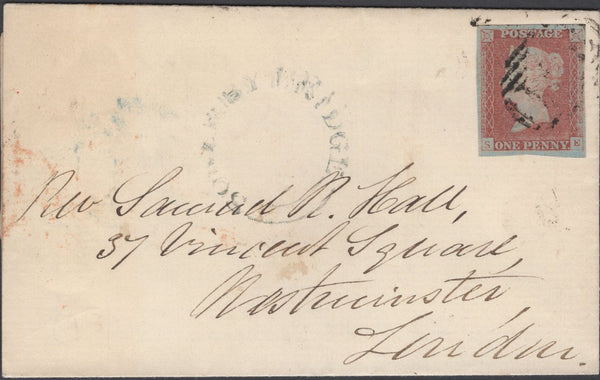 POSTAGE
S E
ONE PENNY
Rev Samuel R. Hall,
37 Vincent Square,
Westminster,
London.